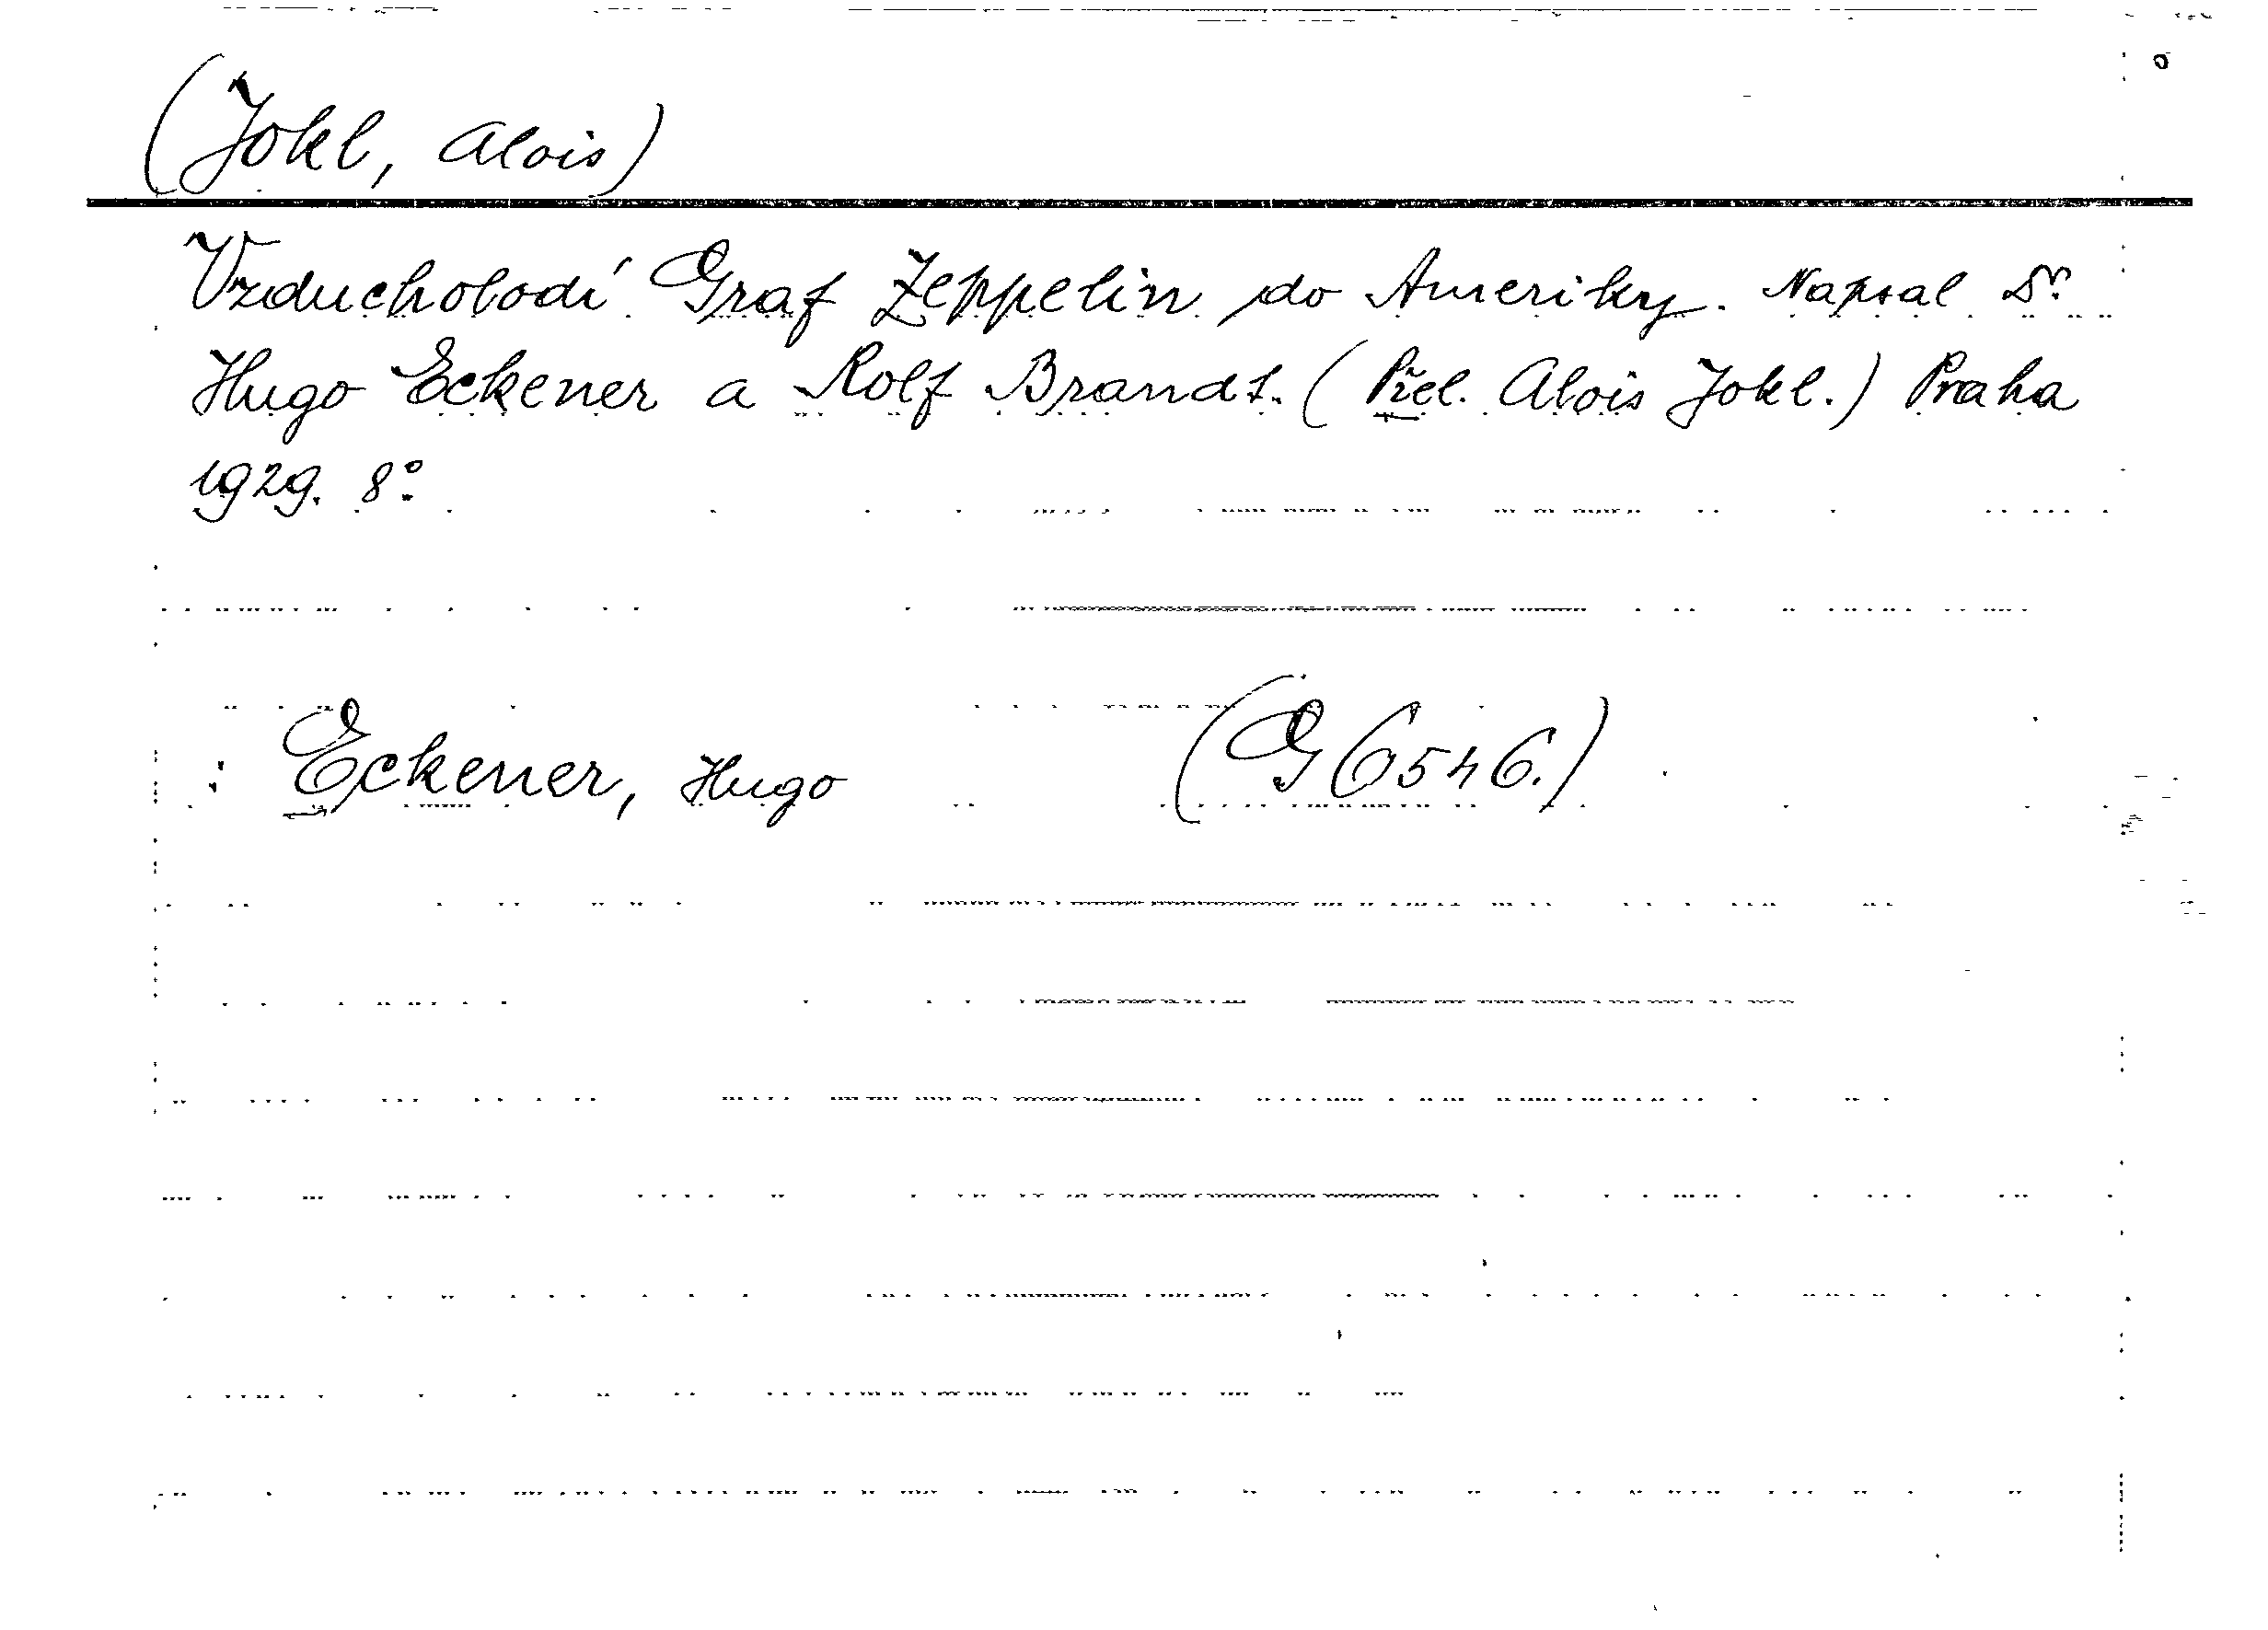 (Jokl, Alois)
Vzducholodí Graf Zeppelin do Ameriky. Napsal Dr.
Hugo Eckener a Rolf Brandt. (Přel. Alois Jokl.) Praha
1929. 8°.
: Eckener, Hugo (G 6546.)